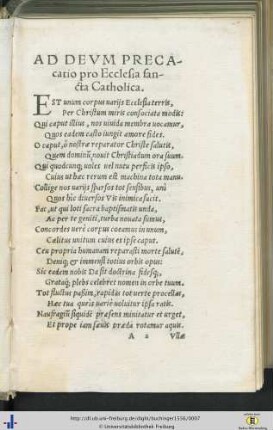 AD DEVM PRECA-
catio pro Ecclesia san-
cta Catholica.
EST unum corpus uarijs Ecclesia terris,
Per Christum miris consociata modis:
Qui caput illius, nos uiuida membra uocamur,
Quos eadem casto iungit amore fides.
O caput, ô nostræ reparator Christe salutis,
Quem dominum nouit Christiatum ora suum.
Qui quodcunq; uoles uel nutu perficis ipso,
Cuius ut hæc rerum est machina tota manu.
Collige nos uarijs sparsos tot sensibus, uni
Quos hic diuersos Vit inimica facit.
Fac, ut qui loti sacro baptismatis unda,
Ac per te geniti, turba nouata sumus,
Concordes ueri corpus coeamus in unum,
Cælitus unitum cuius es ipse caput.
Ceu propria humanam reparasti morte salutem,
Deniq; et immensi totius orbis opus:
Sic eadem nobis Da sit doctrina fidesq;,
Grataq; plebs celebret nomen in orbe tuum.
Tot fluctus passim, rapidas tot uerte procellas,
Hæc tua quæis uarie uoluitur ipsa ratis.
Naufragiū siquidē præsens minitatur et urget,
Et prope iam sæuis præda rotamur aquis.
A 2 Vllæ
http://dl.ub.uni-freiburg.de/diglit/buchinger1556/0007
© Universitätsbibliothek Freiburg